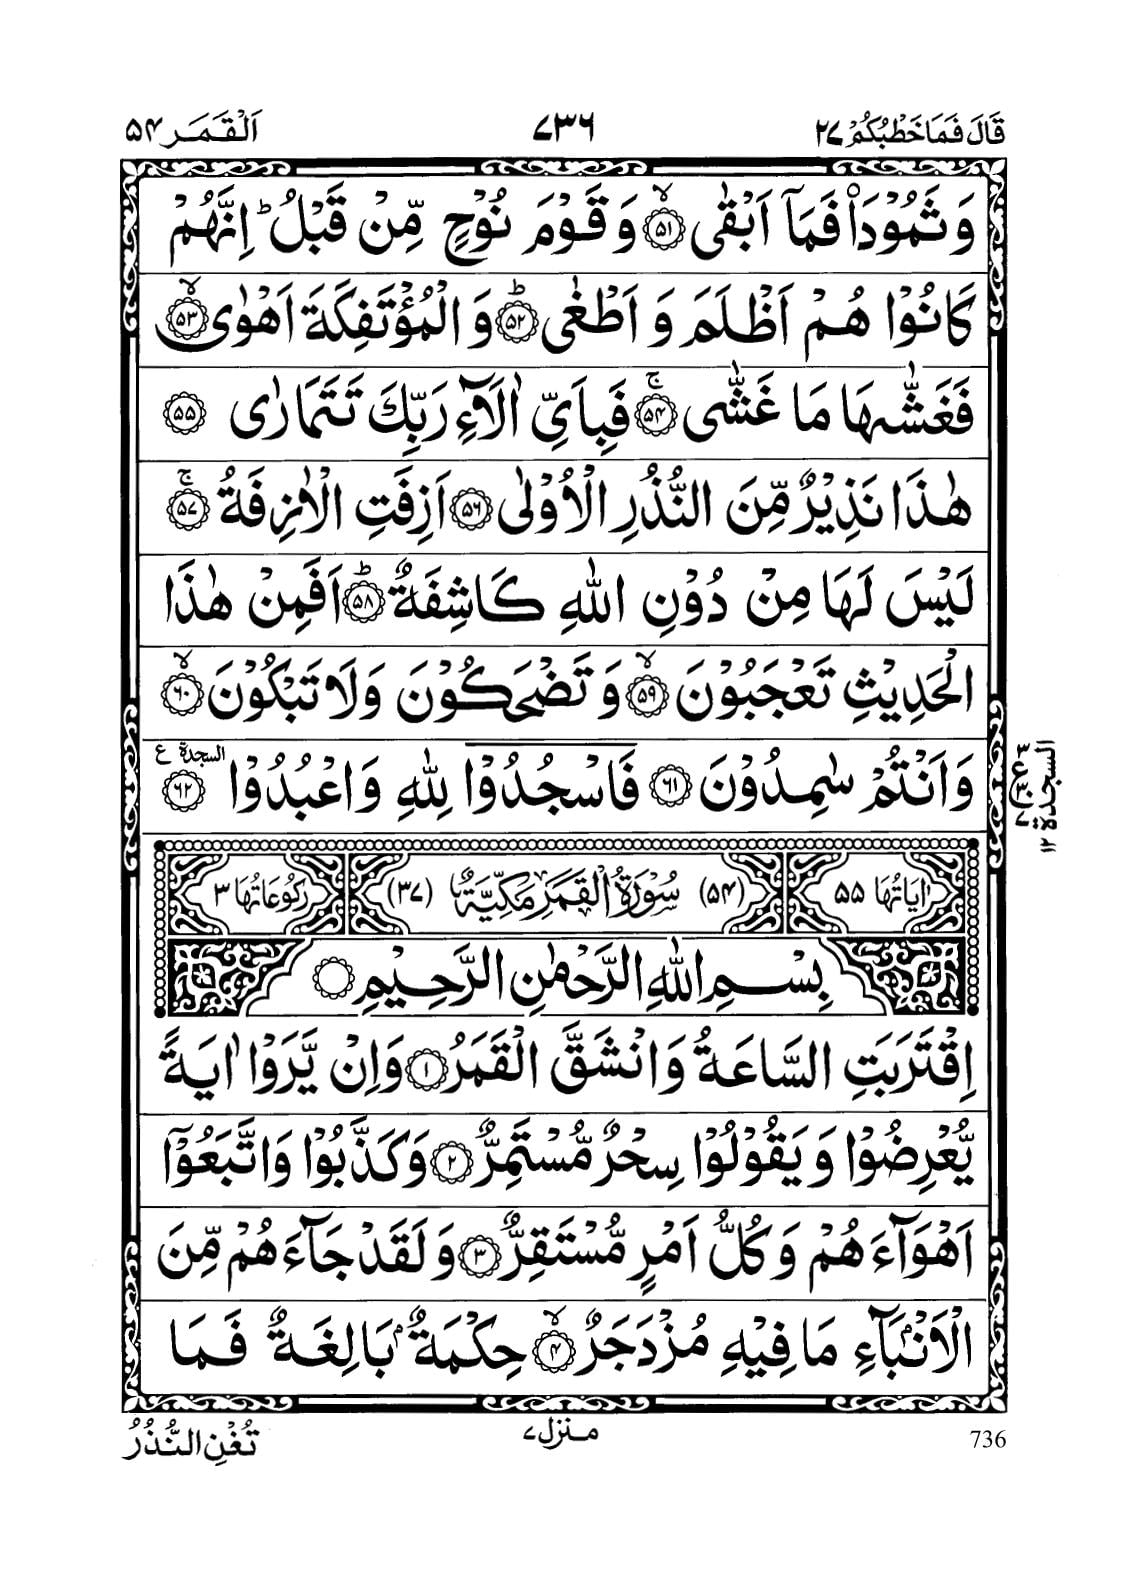 قَالَ فَمَا خَطْبُكُمْ ۲۷
۷۳۶
اَلْقَمَر ۵۴
وَ ثَمُوْدَا۠ فَمَاۤ اَبْقٰى ﴿۵۱﴾ۙ وَ قَوْمَ نُوْحٍ مِّنْ قَبْلُ ؕ اِنَّهُمْ
كَانُوْا هُمْ اَظْلَمَ وَ اَطْغٰى ﴿۵۲﴾ؕ وَ الْمُؤْتَفِكَةَ اَهْوٰى ﴿۵۳﴾ۙ
فَغَشّٰىهَا مَا غَشّٰى ﴿۵۴﴾ۚ فَبِاَيِّ اٰلَآءِ رَبِّكَ تَتَمَارٰى ﴿۵۵﴾
هٰذَا نَذِيْرٌ مِّنَ النُّذُرِ الْاُوْلٰى ﴿۵۶﴾ اَزِفَتِ الْاٰزِفَةُ ﴿۵۷﴾ۚ
لَيْسَ لَهَا مِنْ دُوْنِ اللّٰهِ كَاشِفَةٌ ﴿۵۸﴾ؕ اَفَمِنْ هٰذَا
الْحَدِيْثِ تَعْجَبُوْنَ ﴿۵۹﴾ۙ وَ تَضْحَكُوْنَ وَلَا تَبْكُوْنَ ﴿۶۰﴾ۙ
وَ اَنْتُمْ سٰمِدُوْنَ ﴿۶۱﴾ فَاسْجُدُوْا لِلّٰهِ وَ اعْبُدُوْا ﴿۶۲﴾ السجدة ع
السجدة ۱۲
۳ ع ۳۰ ۷
اٰيَاتُهَا ۵۵
(۵۴) سُوْرَةُ الْقَمَرِ مَكِّيَّةٌ (۳۷)
رُكُوْعَاتُهَا ۳
بِسْمِ اللّٰهِ الرَّحْمٰنِ الرَّحِيْمِ
اِقْتَرَبَتِ السَّاعَةُ وَ انْشَقَّ الْقَمَرُ ﴿۱﴾ وَ اِنْ يَّرَوْا اٰيَةً
يُّعْرِضُوْا وَ يَقُوْلُوْا سِحْرٌ مُّسْتَمِرٌّ ﴿۲﴾ وَ كَذَّبُوْا وَ اتَّبَعُوْۤا
اَهْوَآءَهُمْ وَ كُلُّ اَمْرٍ مُّسْتَقِرٌّ ﴿۳﴾ وَ لَقَدْ جَآءَهُمْ مِّنَ
الْاَنْۢبَآءِ مَا فِيْهِ مُزْدَجَرٌ ﴿۴﴾ۙ حِكْمَةٌۢ بَالِغَةٌ فَمَا
تُغْنِ النُّذُرُ
منزل ۷
736